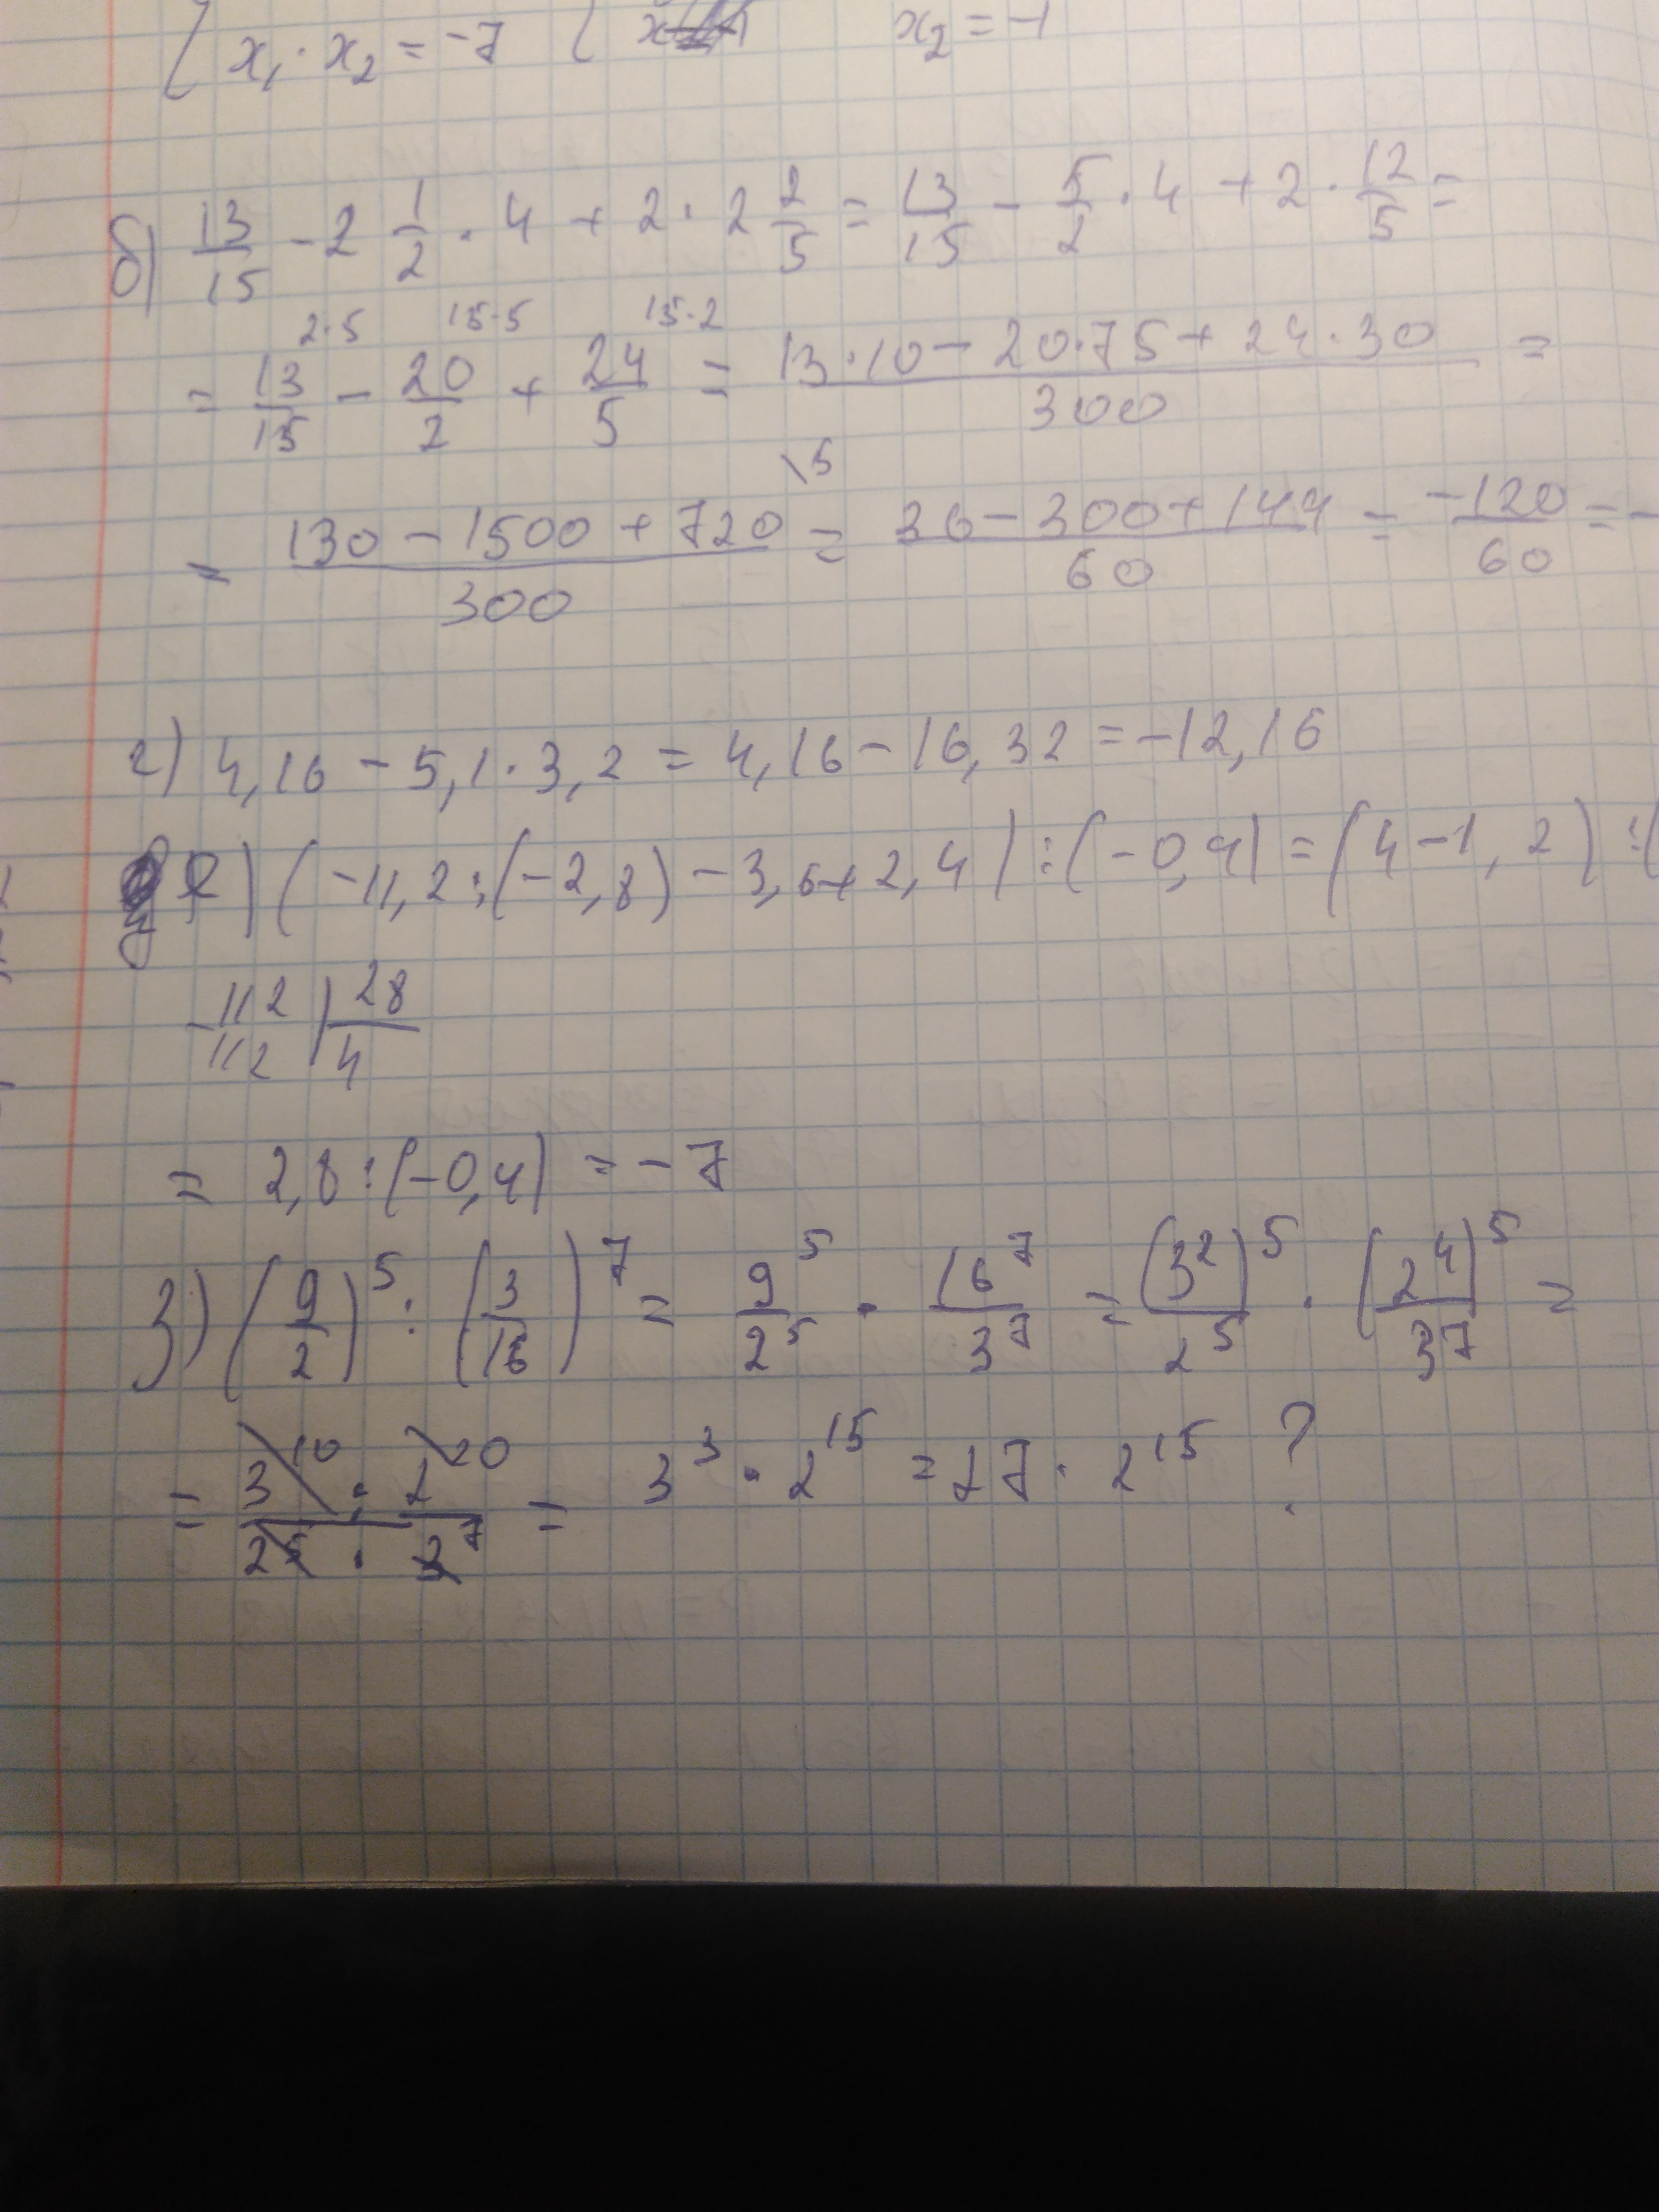 x₁ · x₂ = -7 x₂ = -1
б) 13/15 - 2 1/2 · 4 + 2 · 2 2/5 = 13/15 - 5/2 · 4 + 2 · 12/5 =
2·5 15·5 15·2
= 13/15 - 20/2 + 24/5 = (13·10 - 20·75 + 24·30)/300 =
= (130 - 1500 + 720)/300 \5 = (36 - 300 + 144)/60 = -120/60 = -
г) 4,16 - 5,1 · 3,2 = 4,16 - 16,32 = -12,16
) (-11,2 : (-2,8) - 3,6 + 2,4) : (-0,4) = (4 - 1,2) : (
-112 | 28
112 | 4
= 2,8 : (-0,4) = -7
з) (9/2)⁵ : (3/16)⁷ = 9⁵/2⁵ · 16⁷/3⁷ = (3²)⁵/2⁵ · (2⁴)⁵/3⁷ =
= 3¹⁰ · 2²⁰ / 2⁵ · 3⁷ = 3³ · 2¹⁵ = 27 · 2¹⁵ ?